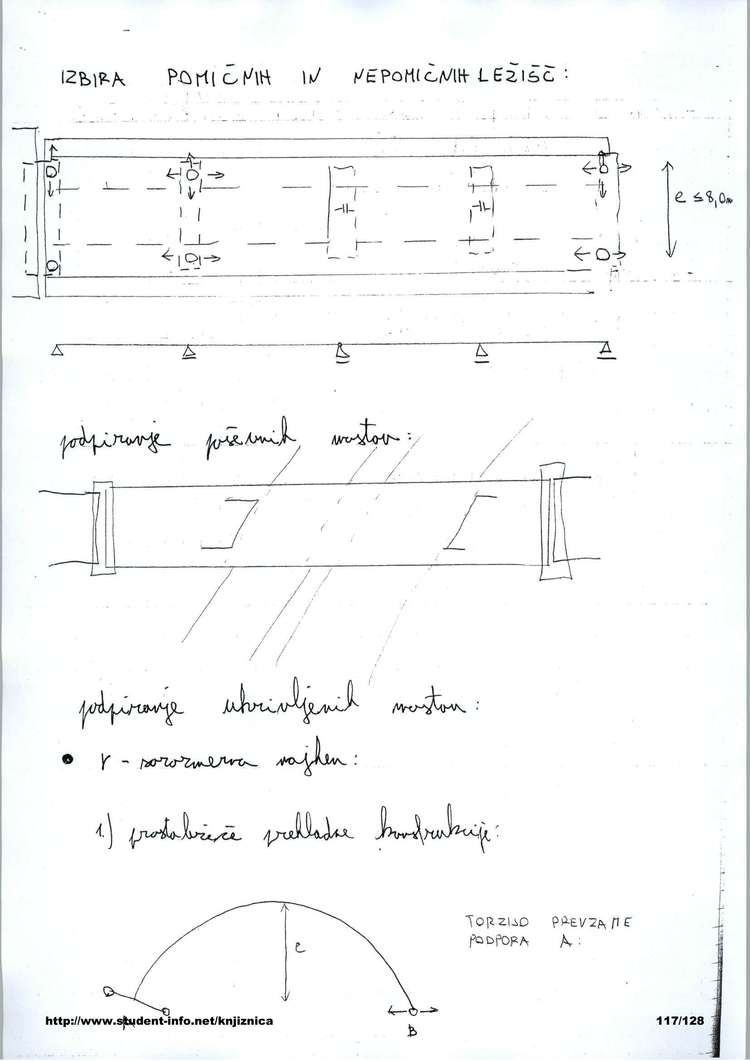 IZBIRA POMIČNIH IN NEPOMIČNIH LEŽIŠČ:
e ≤ 8,0m
podpiranje poševnih mostov:
podpiranje ukrivljenih mostov:
• r - sorozmerno majhen:
1.) prostoležeče prekladne konstrukcije:
TORZIJO PREVZAME
PODPORA A:
e
A
B
http://www.student-info.net/knjiznica
117/128